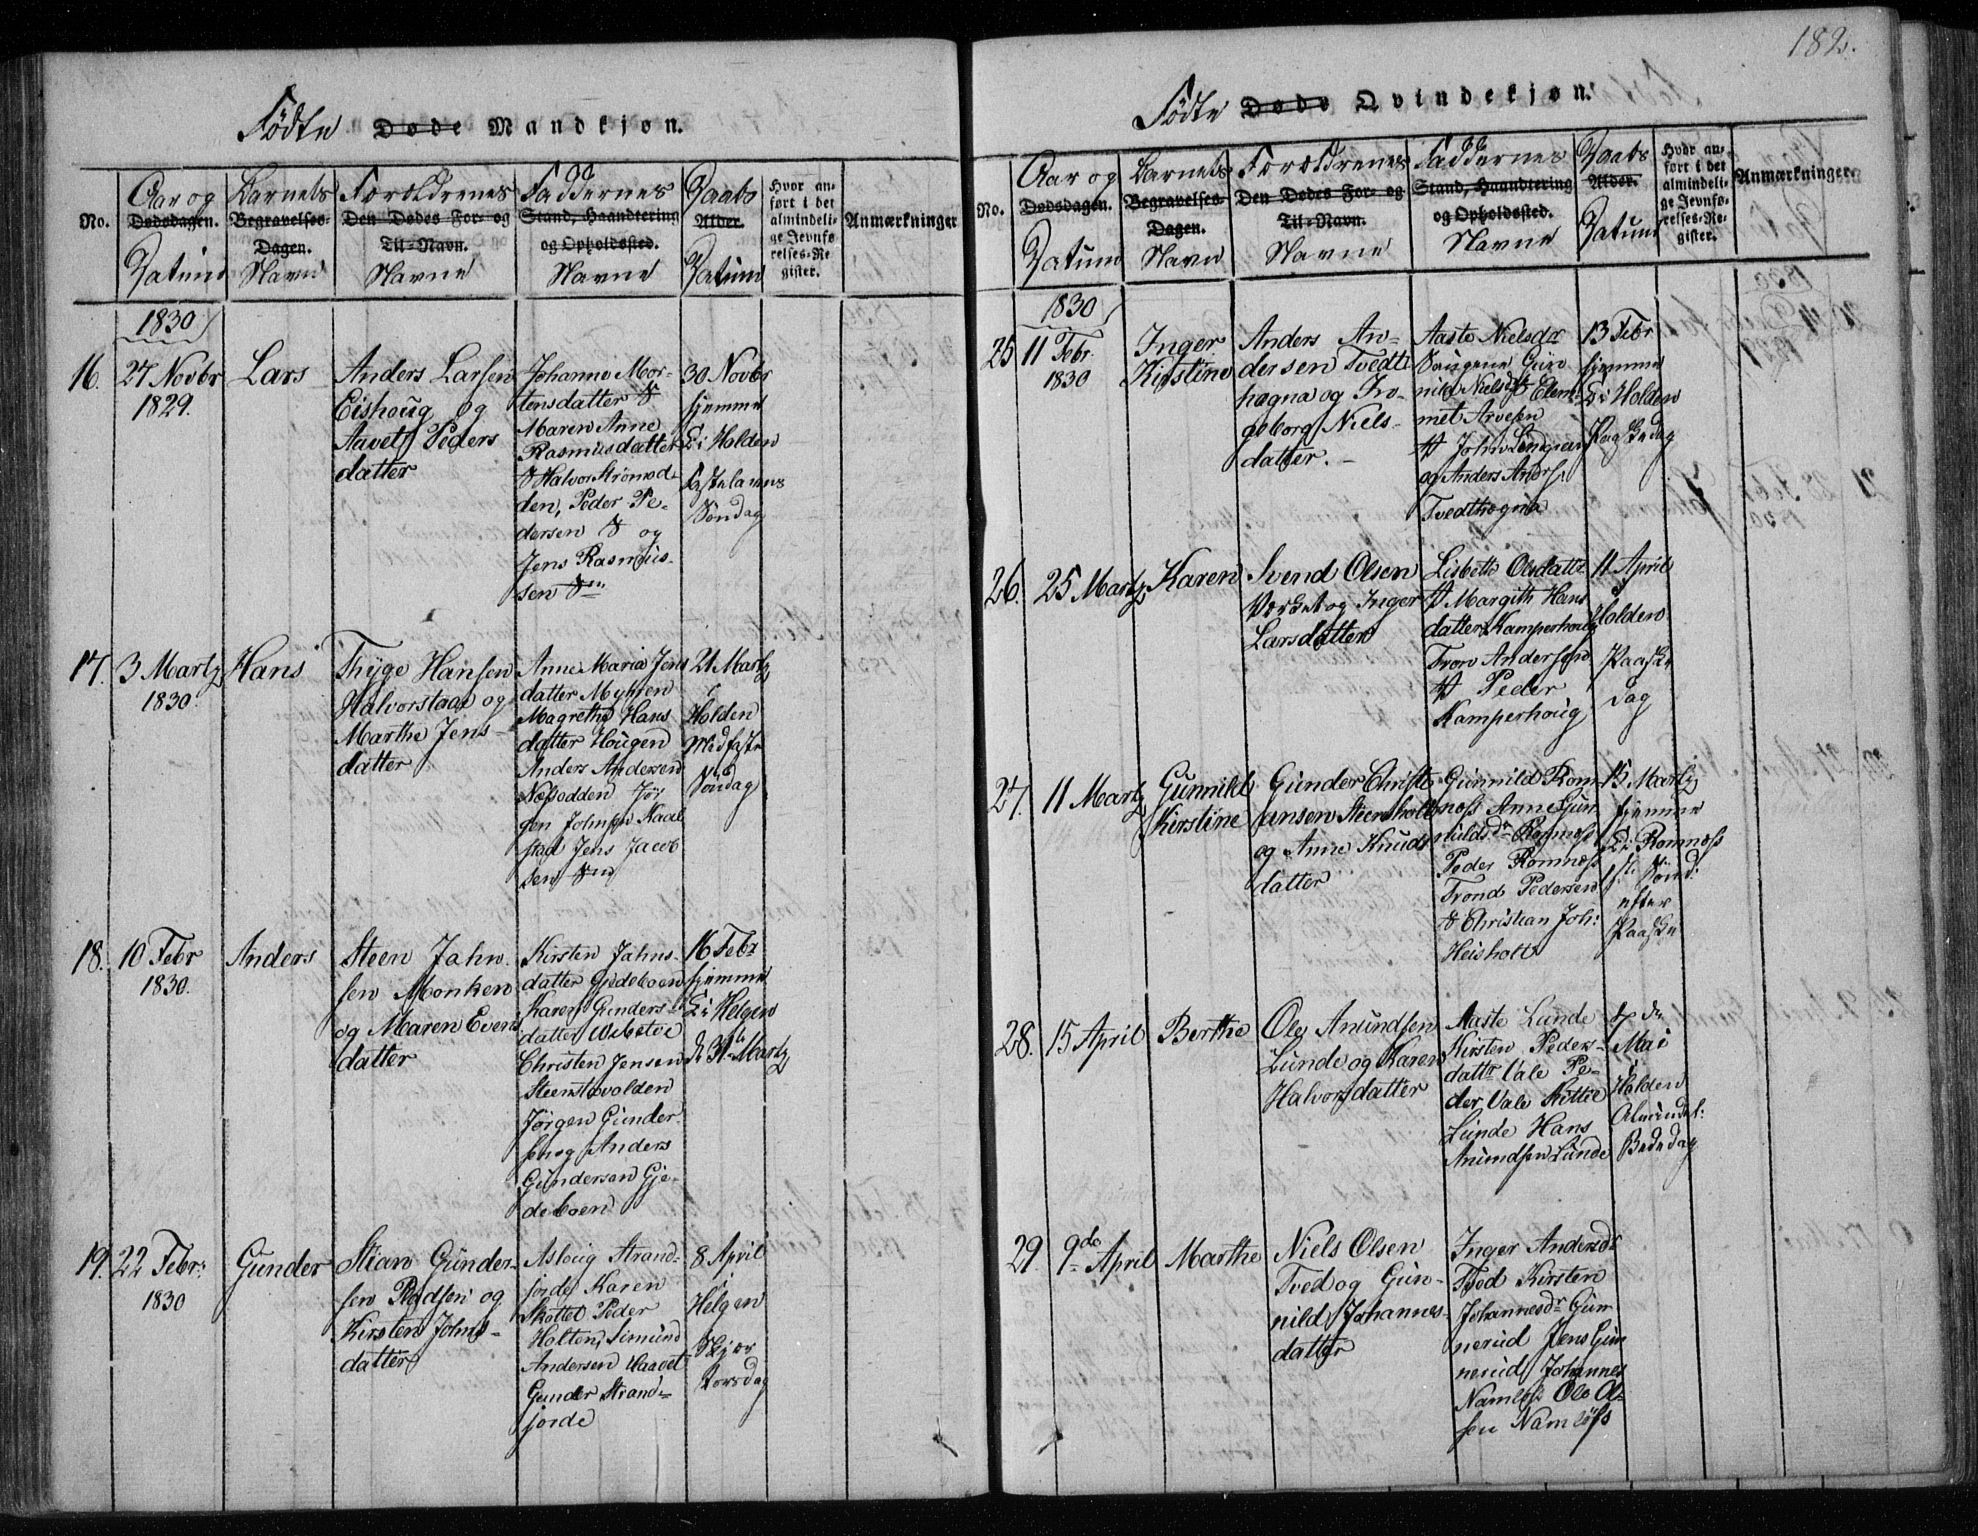 182.
Födte Døde Mandkjøn.
No.
Aar og
Dødsdagen.
Datum
Barnets
Begravelses-
Dagen.
Navn
Forældrenes
Den Dødes For- og
Til-Navn.
Navne
Faddernes
Stand, Haandtering
og Opholdssted.
Navne
Daabs
Alder.
Datum
Hvor an-
ført i det
almindeli-
ge Jevnfø-
relses-Re-
gister.
Anmærkninger
1830
16.
27 Novbr
1829.
Lars
Anders Larsen
Eishoug og
Aavet Peders
datter
Johanne Mor-
tensdatter
Maren Anne
Rasmusdatter
Halvor Strömod-
den, Peder Pe-
dersen og
Jens Rasmus-
sen
30 Novbr
hjemme
i Holden
Fastelavns
Söndag
17.
3 Martz
1830.
Hans
Thyge Hansen
Halvorstaae og
Marthe Jens-
datter
Anne Maria Jens
datter Myhren
Magrethe Hans
datter Hougen
Anders Andersen
Næsodden Jör
gen Johnsen Kaal
stad Jens Jacob
sen
21 Martz
i
Holden
Midfaste
Söndag
18.
10 Febr
1830.
Anders
Steen Jahn
sen Monken
og Maren Evens
datter
Kirsten Jahns-
datter Gjedeboen
Karen Gunders-
datter
Christen Jensen
Steenstvolden
Jörgen Gunder
sen og Anders
Gundersen Gje-
deboen
16 Febr
hjemme
i Helgen
d 31te Martz
19.
22 Febr:
1830
Gunder
Stian Gunder-
sen og
Kirsten Johns-
datter
Asloug Strand-
jorde Karen
Skottel Peder
Holten, Simund
Andersen Vaadet
Gunder Strand-
jorde
8 April
i
Helgen
Skjær
torsdag
Födte Døde Qvindekjøn.
No.
Aar og
Dødsdagen.
Datum
Barnets
Begravelses-
Dagen.
Navn
Forældrenes
Den Dødes For- og
Til-Navn.
Navne
Faddernes
Stand, Haandtering
og Opholdssted.
Navne
Daabs
Alder.
Datum
Hvor an-
ført i det
almindeli-
ge Jevnfø-
relses-Re-
gister.
Anmærkninger.
1830
25
11 Febr.
1830
Inger
Kirstine
Anders An-
dersen Tvedt
hægna og In-
geborg Niels-
datter.
Aaste Nielsdr
Gun
nild Nielsdr
met Arvesen
John
og Anders Anders
Tvedthægna
13 Febr
hjemme
i Holden
Paaskedag
26.
25 Martz
Karen
Svend Olsen
Værket og Inger
Larsdatter
Lisbeth Olsdatter
Margith Hans
datter Kamperhoug
Tron Andersen
Peder
Kamperhoug
11 April
i
Holden
Paaske
dag
27.
11 Martz
Gunnild
Kirstine
Gunder Christi-
ansen Steensholt
og Anne Knuds
datter
Gunnild Rom
næss Anne Gun
nuldsdr Romnæss
Peder Romnæss
Trond Pedersen
Christian Joh:
Heisholt
15 Martz
hjemme
i Romnæss
1ste Sönd:
efter
Paaske
28.
15 April
Berthe
Ole Amundsen
Lunde og Karen
Halvorsdatter
Aaste Lunde
Kirsten Peders-
dattr Vale Pe-
der Vale Kittil
Lunde Hans
Amundsen Lunde
7de
Mai
i
Holden
Almindel:
Bededag
29.
9de April
Marthe
Niels Olsen
Tved og Gun-
nild Johannes-
datter
Inger Andersdr
Tved Kirsten
Johannesdr Gun
nerud Jens Gun
nerud Johannes
Namløs Ole Ol-
sen Namløss